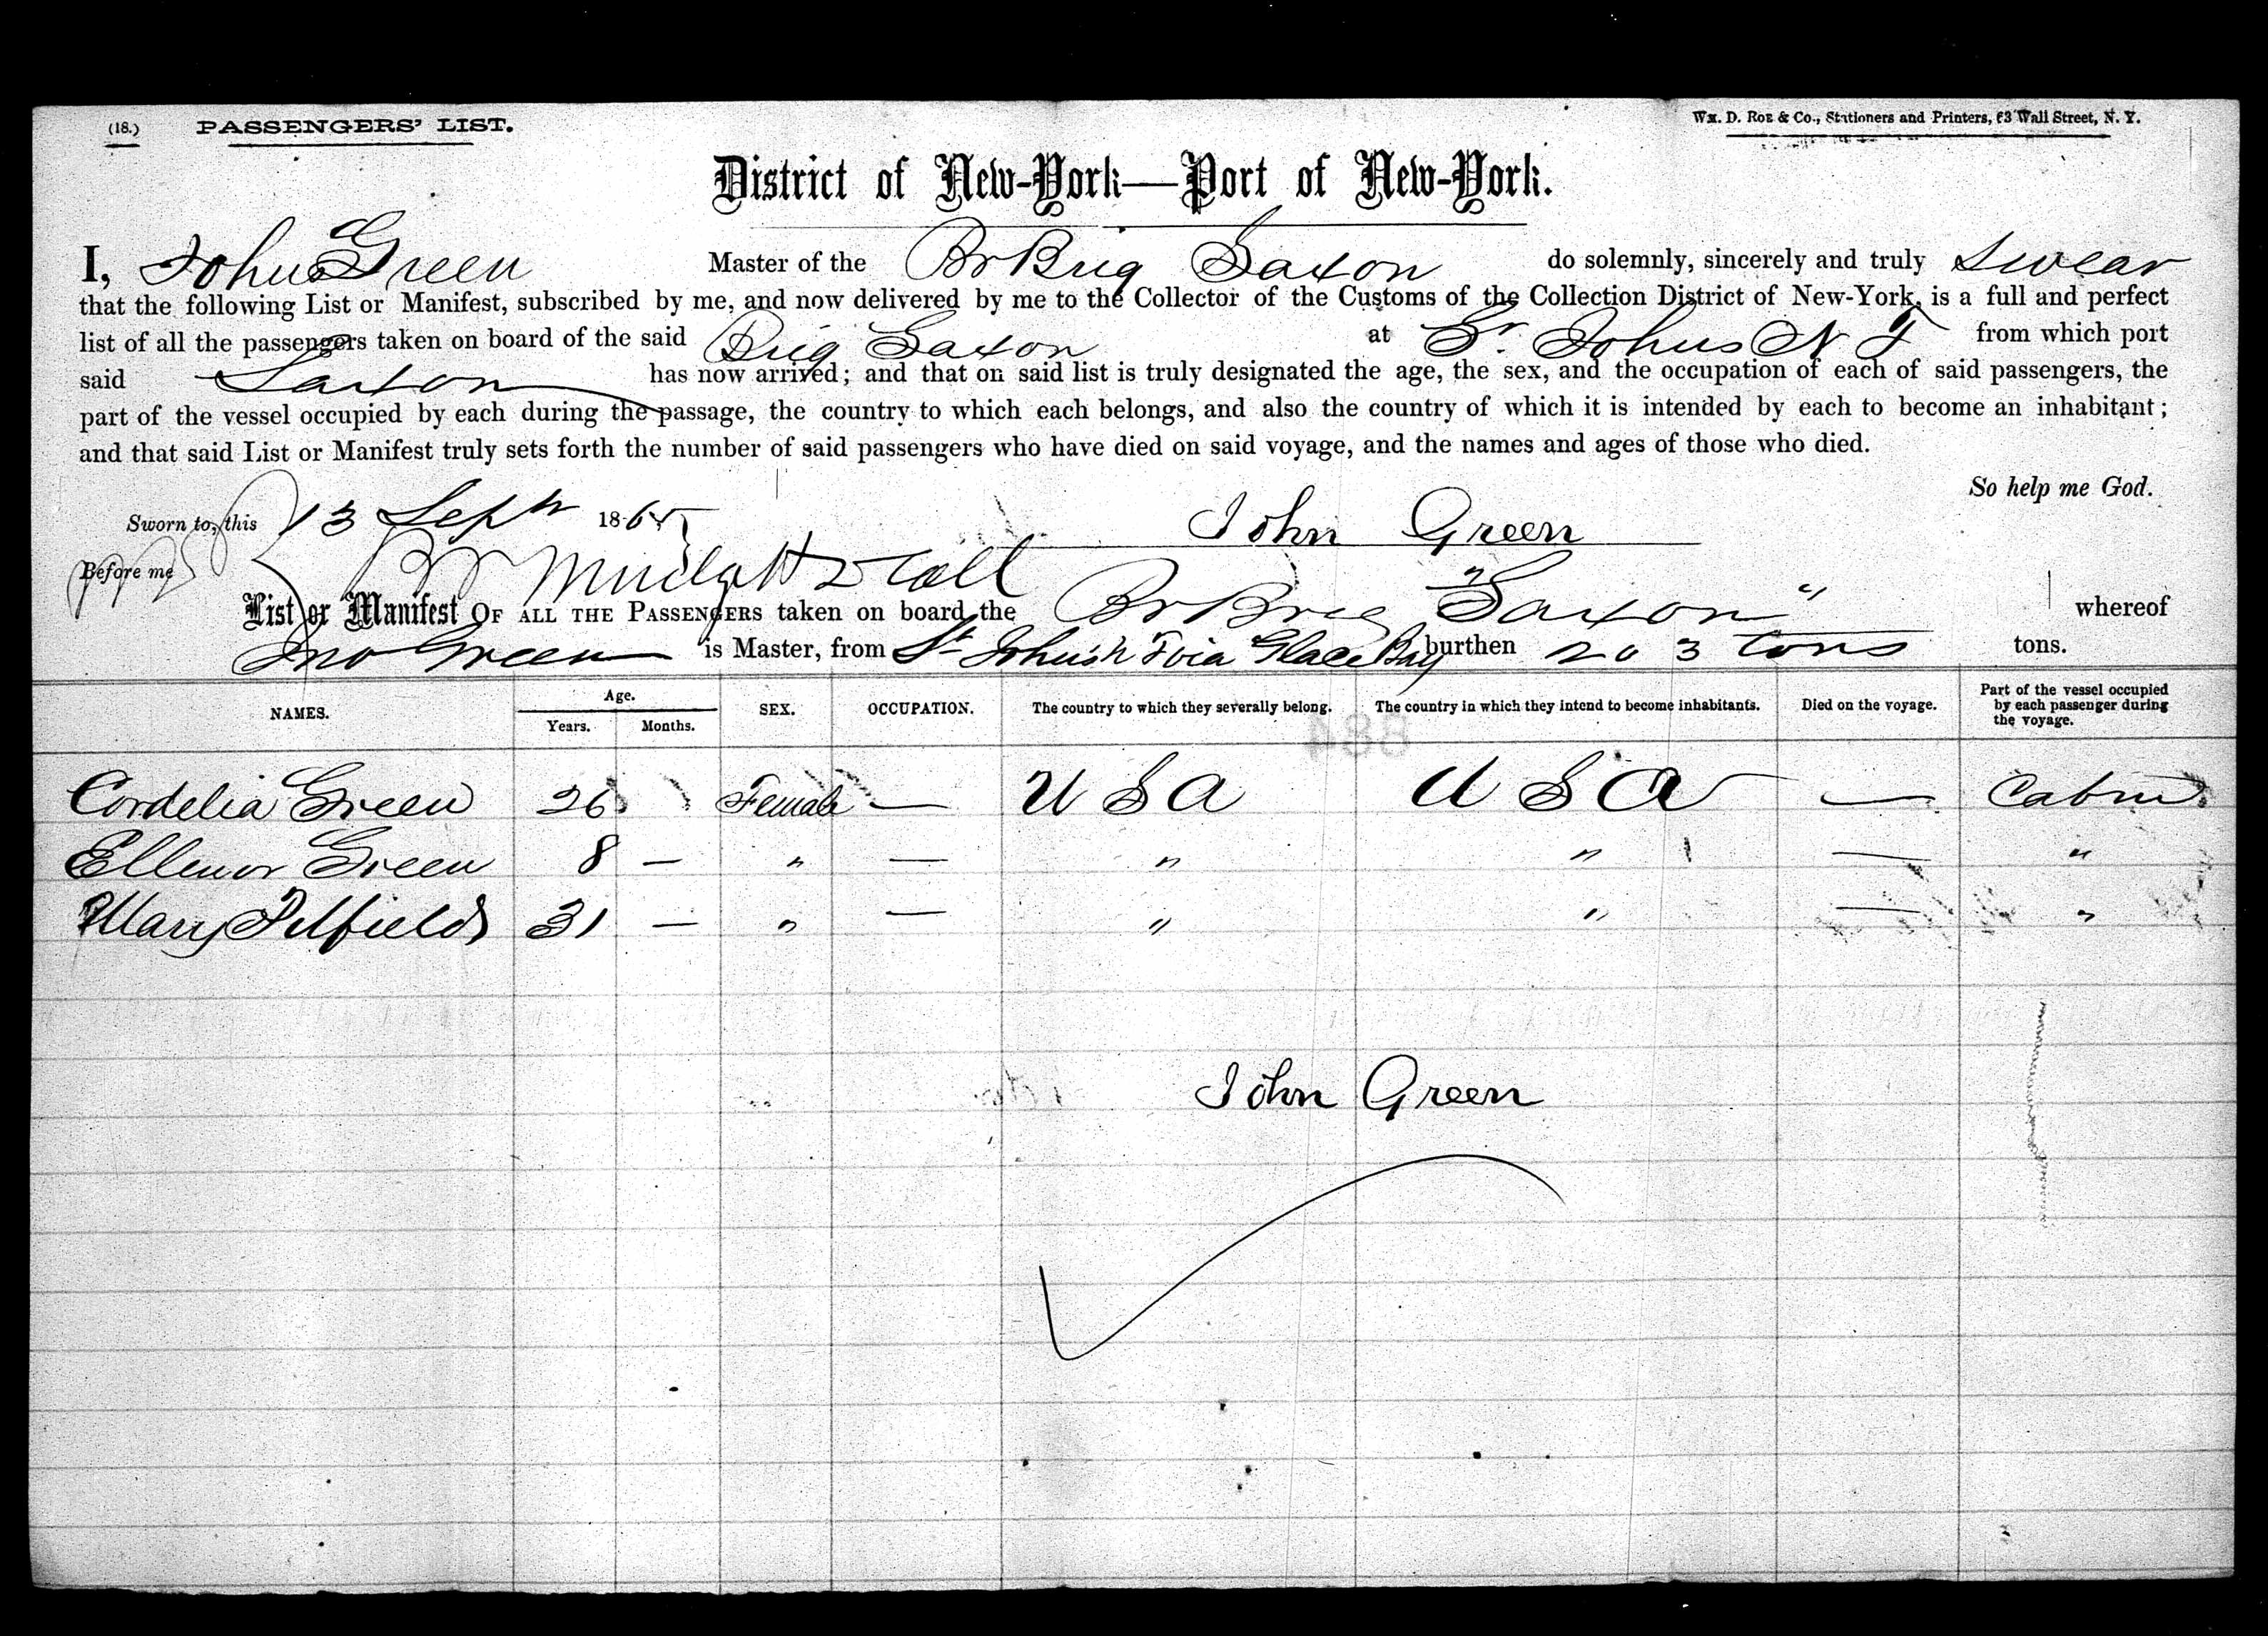 (18.) PASSENGERS' LIST.
Wm. D. Roe & Co., Stationers and Printers, 63 Wall Street, N. Y.
District of New-York—Port of New-York.
I, John Green Master of the Br Brig Saxon do solemnly, sincerely and truly Swear
that the following List or Manifest, subscribed by me, and now delivered by me to the Collector of the Customs of the Collection District of New-York, is a full and perfect
list of all the passengers taken on board of the said Brig Saxon at St. Johns N F from which port
said Saxon has now arrived; and that on said list is truly designated the age, the sex, and the occupation of each of said passengers, the
part of the vessel occupied by each during the passage, the country to which each belongs, and also the country of which it is intended by each to become an inhabitant;
and that said List or Manifest truly sets forth the number of said passengers who have died on said voyage, and the names and ages of those who died.
So help me God.
Sworn to, this 13 Sept 1865 John Green
Before me
List or Manifest OF ALL THE PASSENGERS taken on board the Br Brig "Saxon" whereof
Jno Green is Master, from St Johns N F via Glace Bay burthen 203 tons tons.
NAMES. Age. Years. Months. SEX. OCCUPATION. The country to which they severally belong. The country in which they intend to become inhabitants. Died on the voyage. Part of the vessel occupied by each passenger during the voyage.
Cordelia Green 26 Female — U S A U S A — Cabin
Ellenor Green 8 — " — " " — "
Mary 31 — " — " " — "
John Green